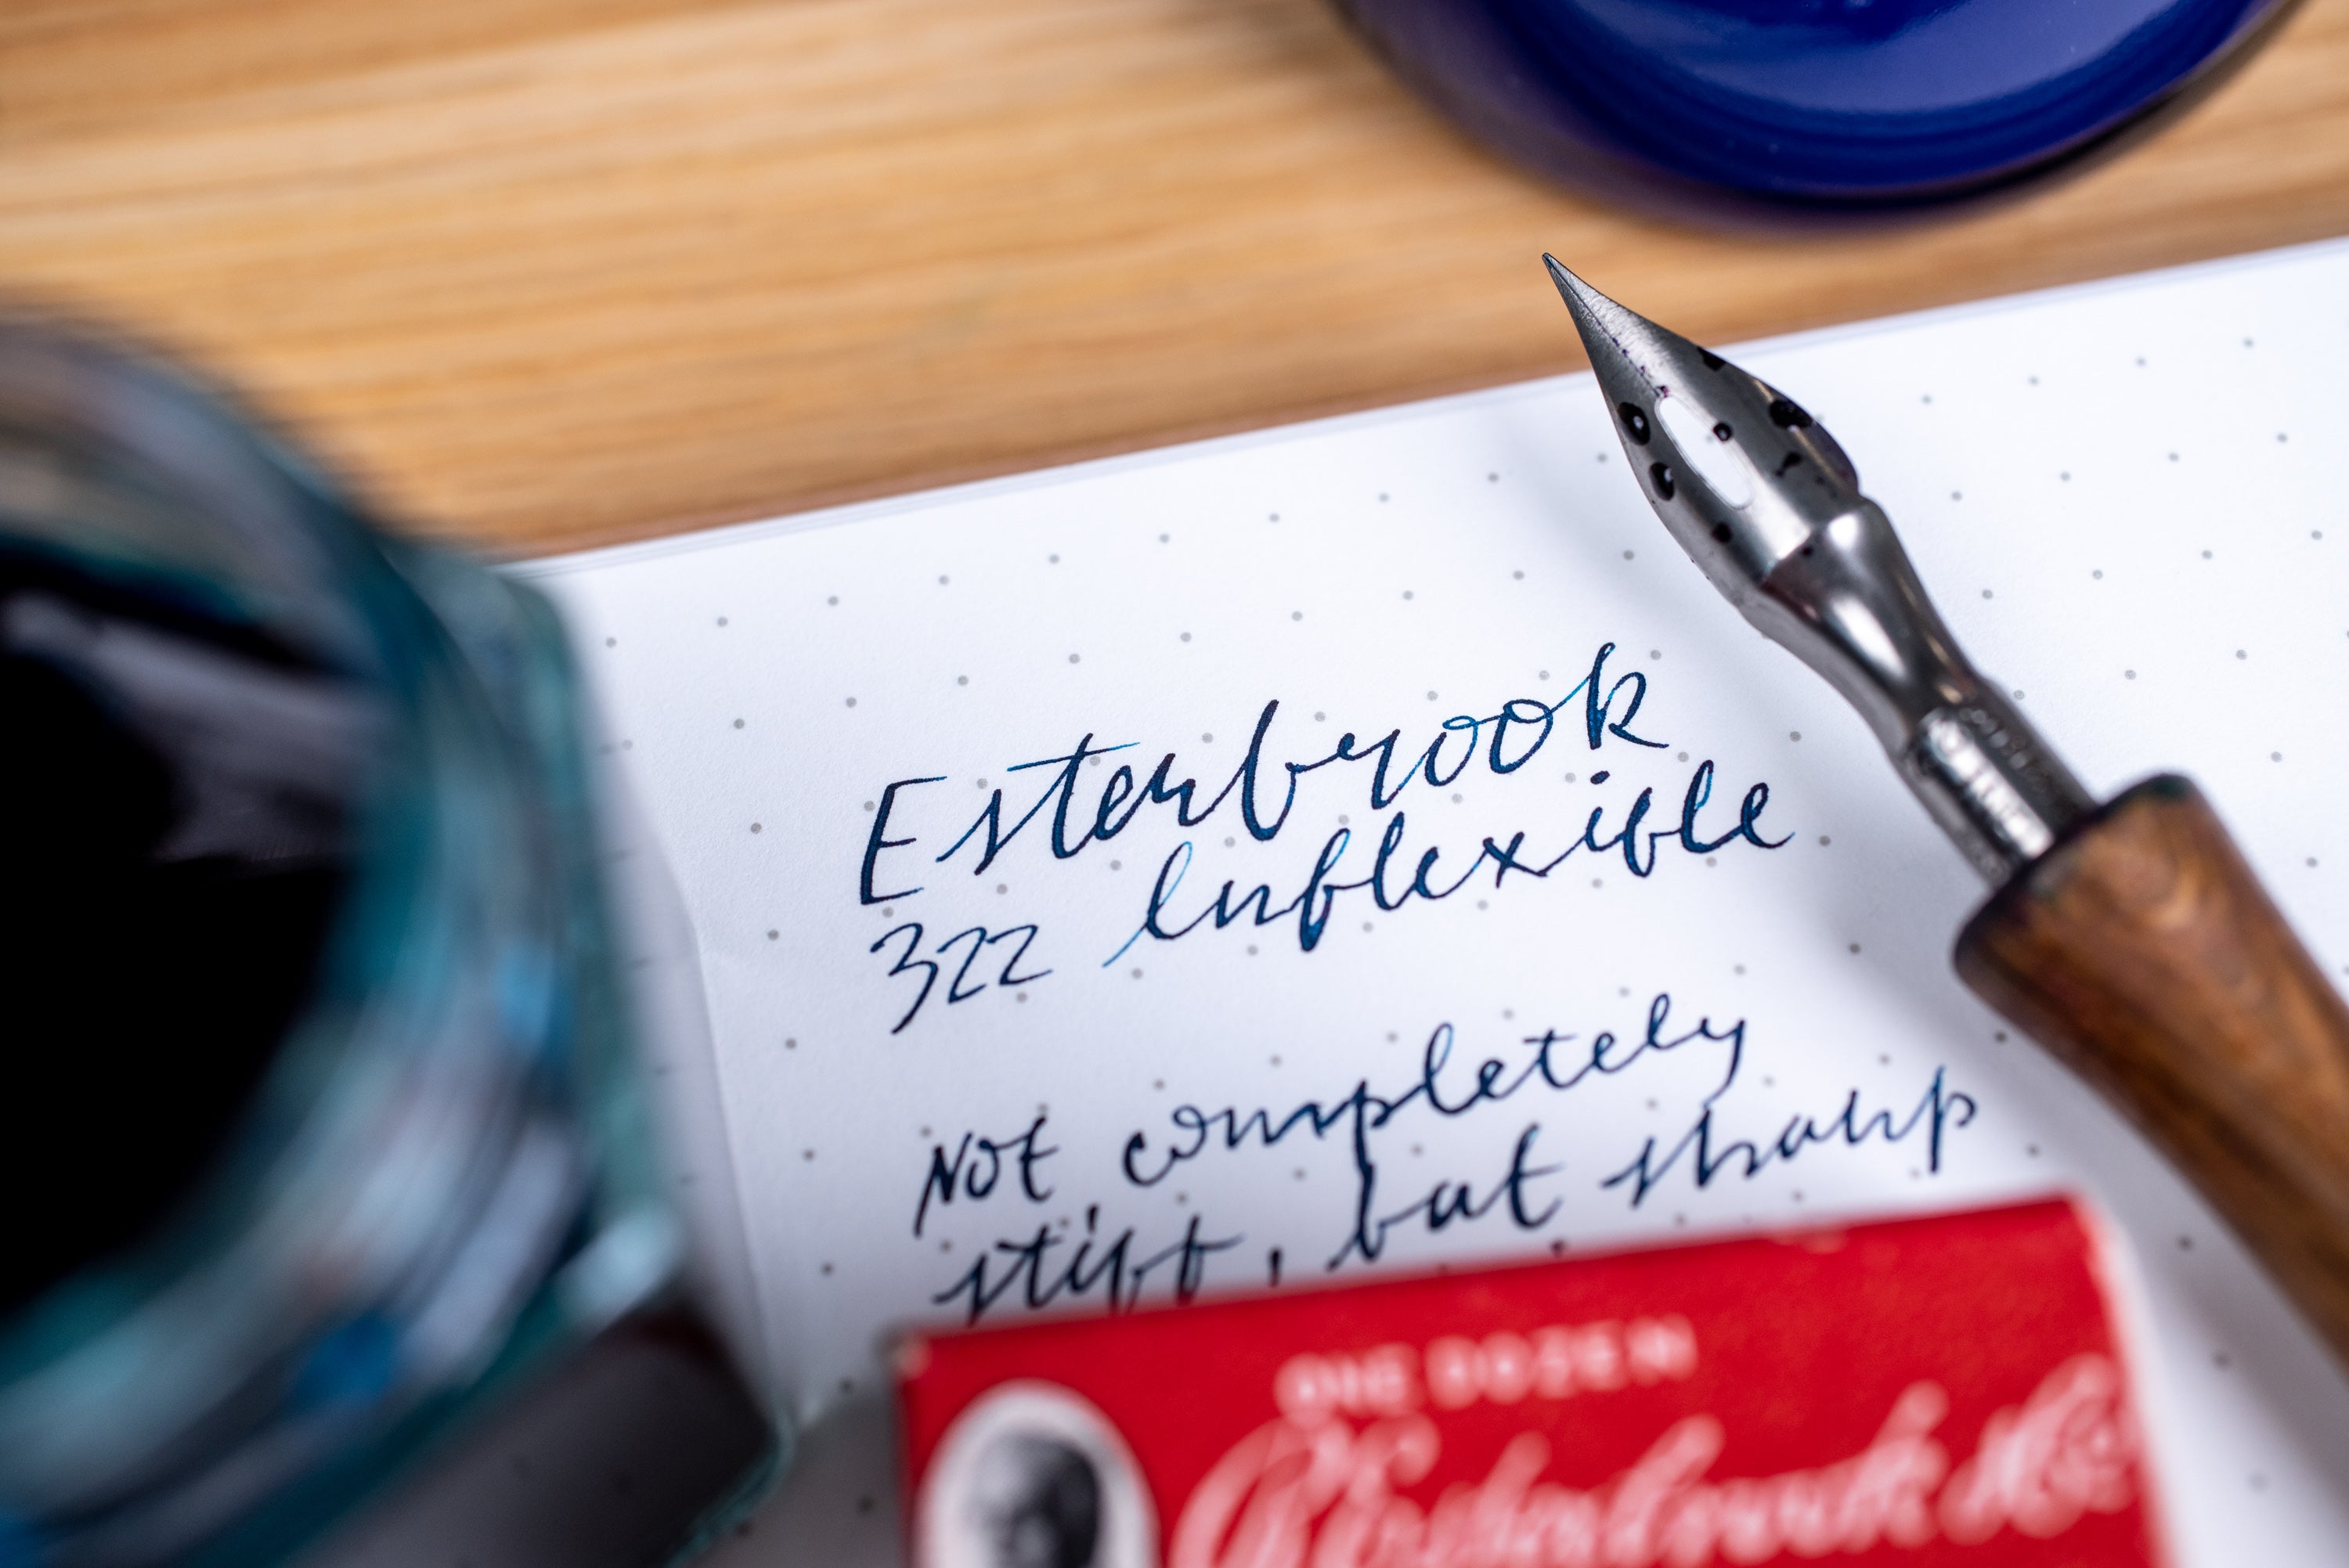 Esterbrook
322 Inflexible
Not completely
stiff, but sharp
ONE DOZEN
Esterbrook